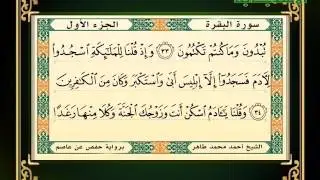 سورة البقرة
الجزء الأول
تُبْدُونَ وَمَا كُنتُمْ تَكْتُمُونَ ٣٣ وَإِذْ قُلْنَا لِلْمَلَـٰٓئِكَةِ ٱسْجُدُوا۟
لِـَٔادَمَ فَسَجَدُوٓا۟ إِلَّآ إِبْلِيسَ أَبَىٰ وَٱسْتَكْبَرَ وَكَانَ مِنَ ٱلْكَـٰفِرِينَ
٣٤ وَقُلْنَا يَـٰٓـَٔادَمُ ٱسْكُنْ أَنتَ وَزَوْجُكَ ٱلْجَنَّةَ وَكُلَا مِنْهَا رَغَدًا
الشيخ أحمد محمد طاهر
برواية حفص عن عاصم